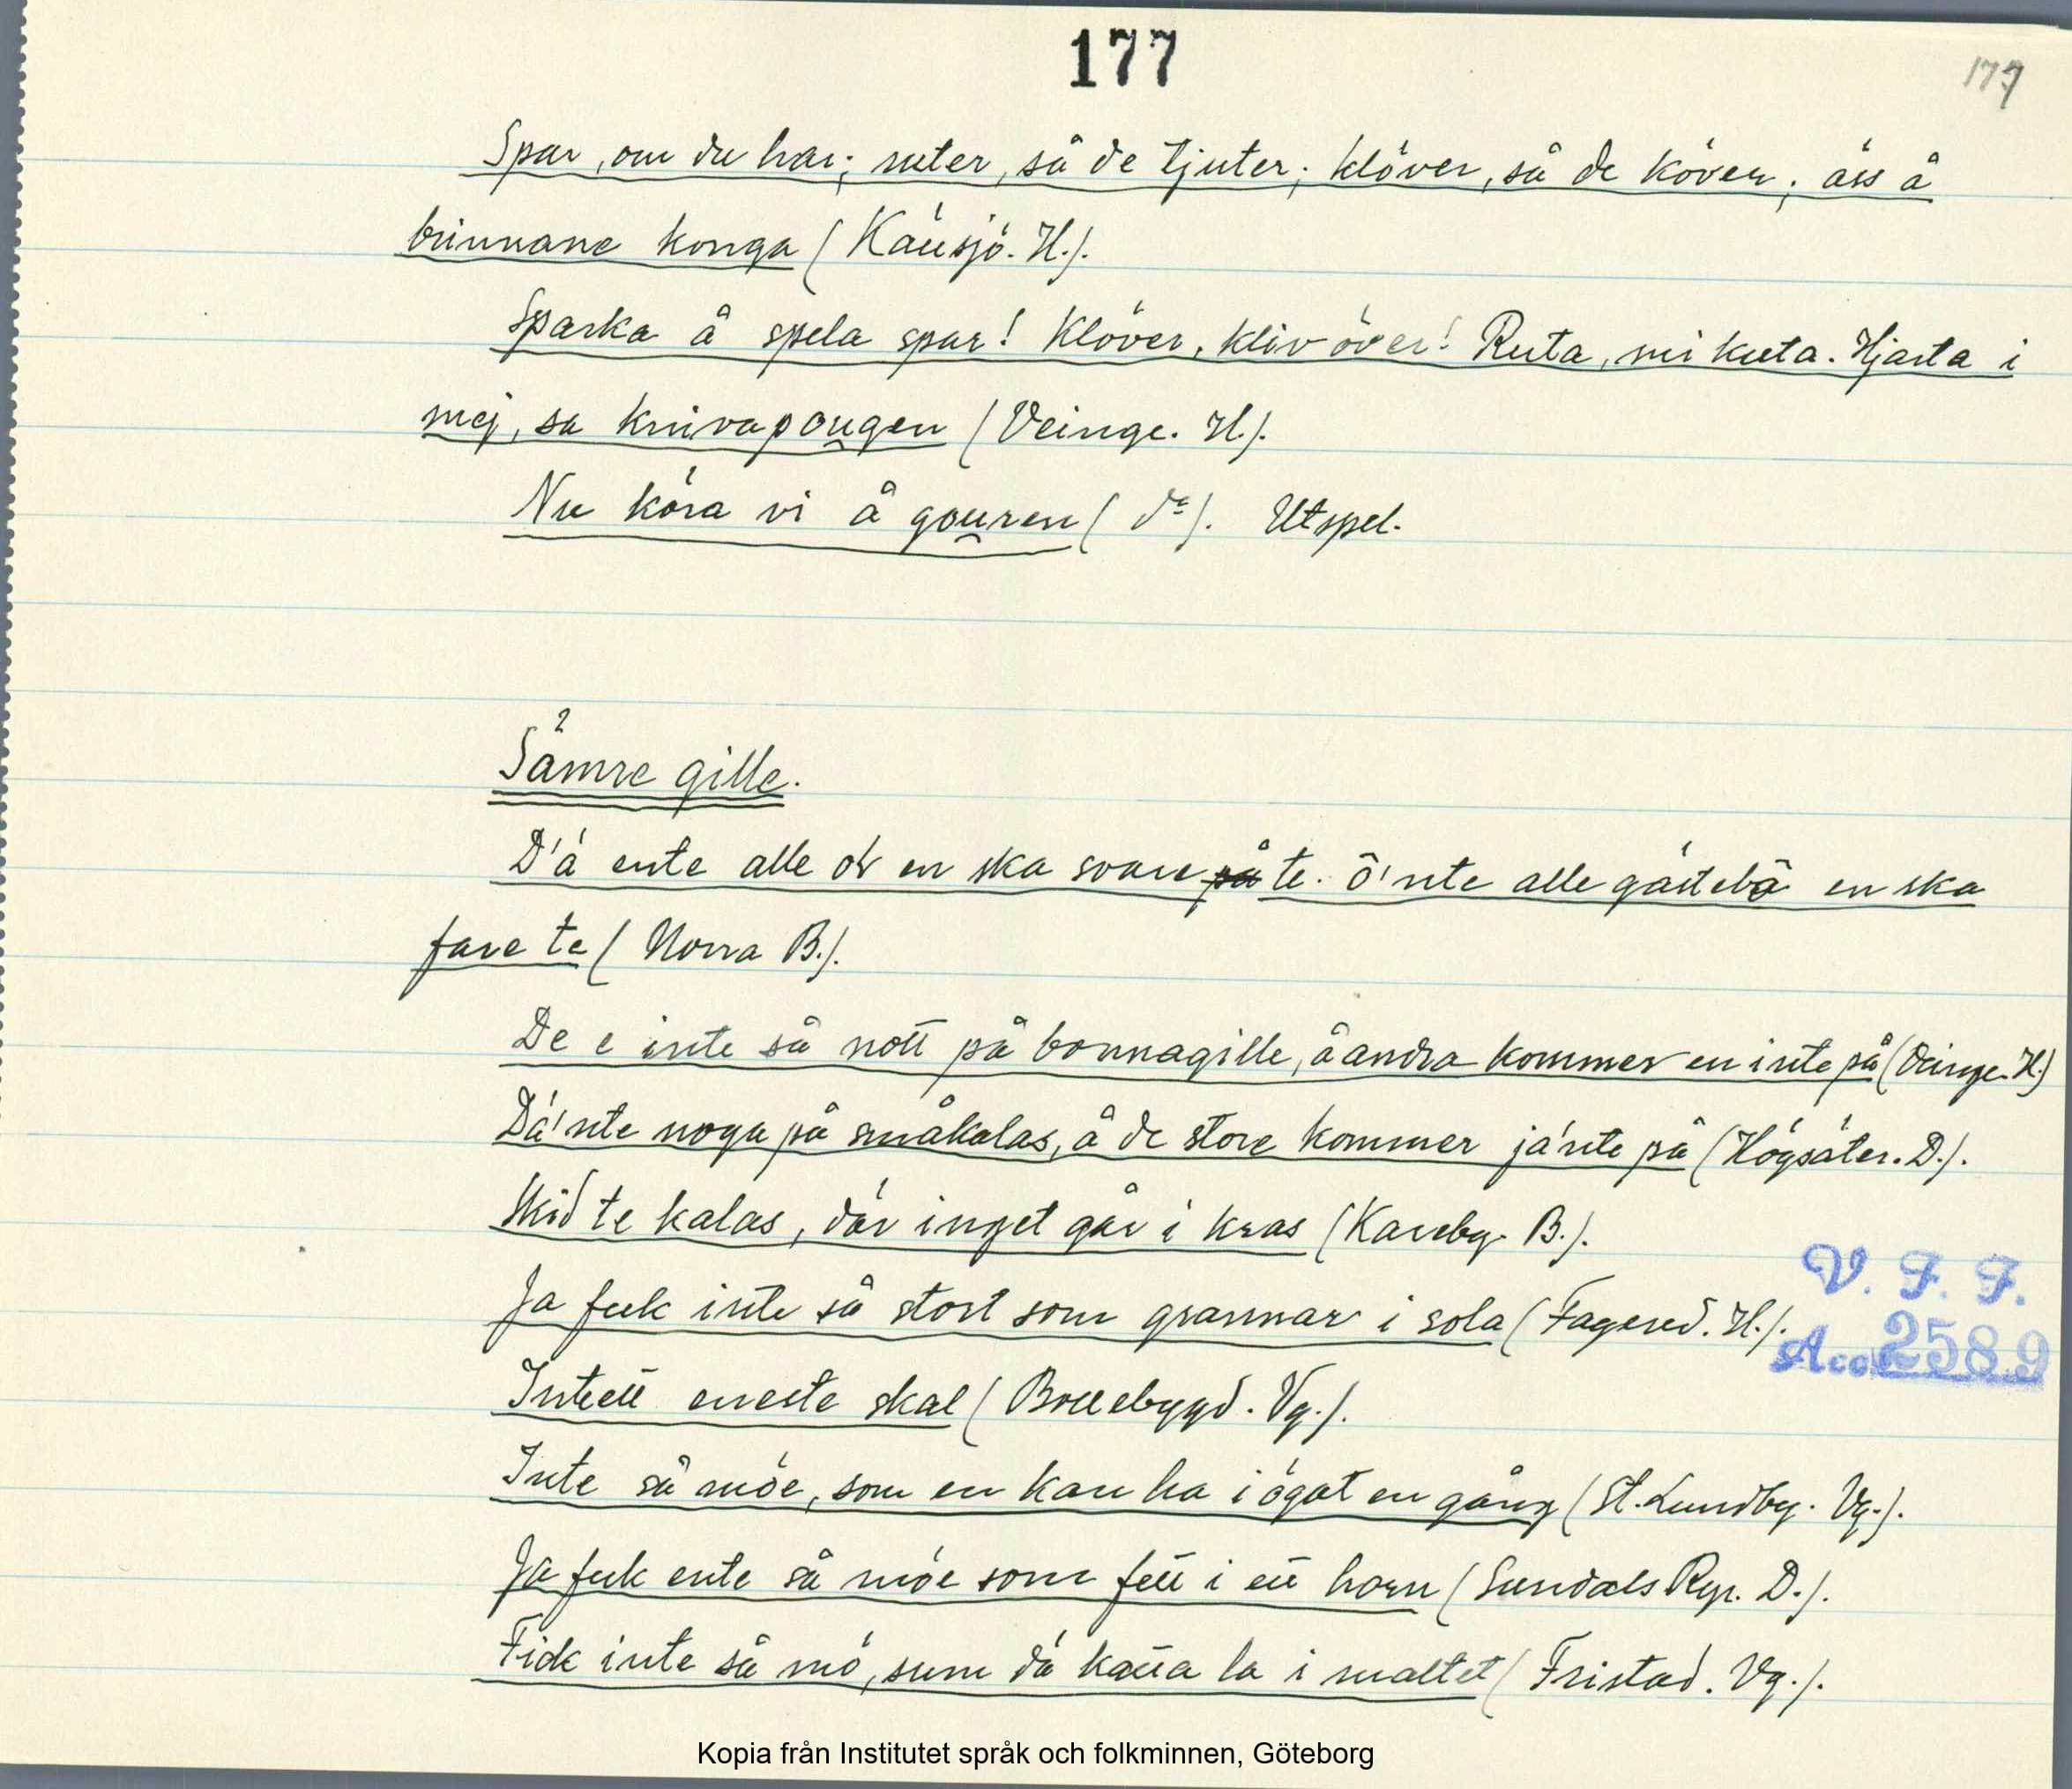 177
177
Spar, om du har; ruter, så de tjuter; klöver, så de köver; äss å
brinnane konga (Känsjö. H.).
Sparka å spela spar! Klöver, kliv över! Ruta, mi kuta. Hjärta i
mej, sa knivapougen (Veinge. H.).
Nu köra vi å gouren (do). Utspel.
Sämre gille.
D'ä ente alle ol en ska svare på te. Ö'nte alle gästebå en ska
fare te (Norra B.).
De e inte så nött på bonnagille, å andra kommer en inte på (Veinge. H.)
Dä'nte noga på småkalas, å de store kommer jä'nte på (Högsäter. D.).
Skid te kalas, där inget går i kras (Kareby. B.).
Ja feck inte så stort som grannar i sola (Fagered. H.).
Inte ett eneste skal (Bollebygd. Vg.).
Inte så möe, som en kan ha i ögat en gång (St. Lundby. Vg.).
Ja feck ente så möe som fett i ett horn (Sundals Ryr. D.).
Fick inte så mö, sum dä katta la i maltet (Fristad. Vg.).
V. F. F.
Acc. 2589
Kopia från Institutet språk och folkminnen, Göteborg